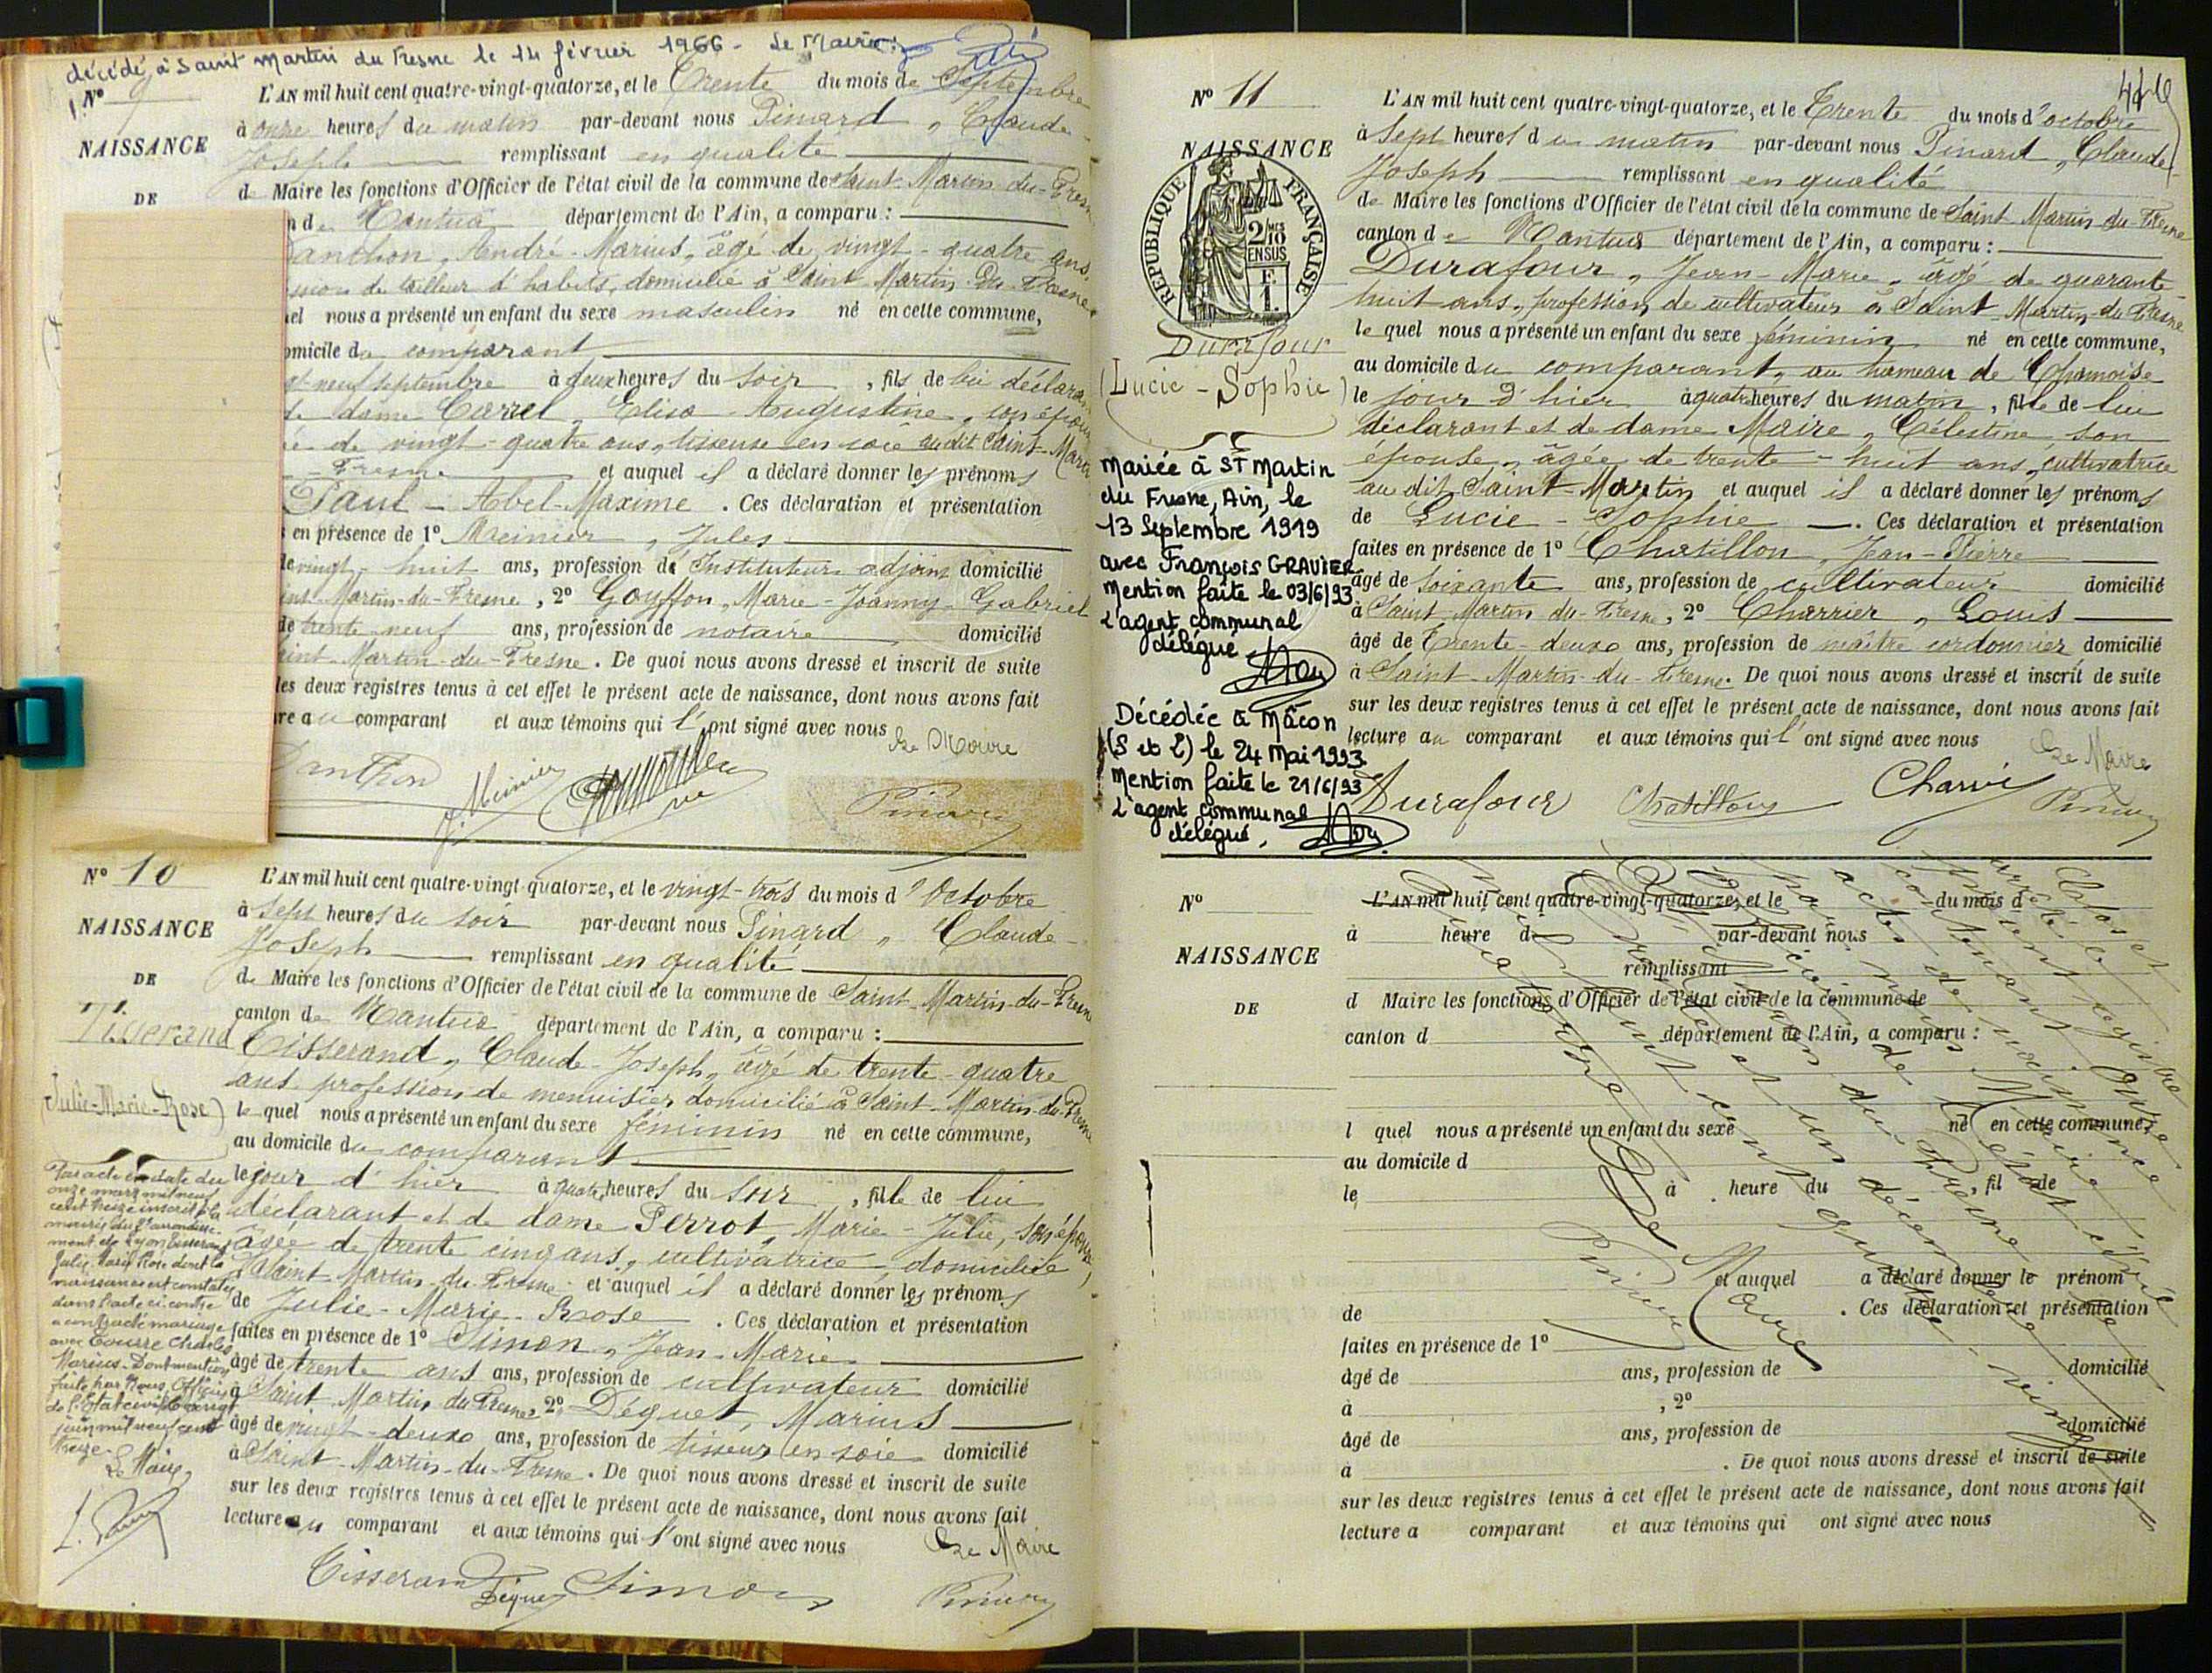 décédé à Saint Martin du Fresne le 14 février 1966 - Le Maire:
N° 9
NAISSANCE
DE
L'AN mil huit cent quatre-vingt-quatorze, et le Trente du mois de Septembre
à onze heures du matin par-devant nous Pinard, Claude
Joseph remplissant en qualité
de Maire les fonctions d'Officier de l'état civil de la commune de Saint-Martin-du-Fresne
n de Nantua département de l'Ain, a comparu :
Danthon, André-Marius, âgé de vingt-quatre ans,
de tailleur d'habits, domicilié à Saint-Martin-du-Fresne
el nous a présenté un enfant du sexe masculin né en cette commune,
omicile du comparant
gt-neuf septembre à deux heures du soir, fils de lui déclarant
de dame Carrel, Elisa-Augustine, son épouse
de vingt-quatre ans, tisseuse en soie audit Saint-Martin
-Fresne et auquel il a déclaré donner les prénoms
Paul-Abel-Maxime. Ces déclaration et présentation
en présence de 1° Meinier, Jules
de vingt-huit ans, profession de Instituteur adjoint domicilié
int-Martin-du-Fresne, 2° Gouffon, Marie-Joanny-Gabriel
de trente-neuf ans, profession de notaire domicilié
aint-Martin-du-Fresne. De quoi nous avons dressé et inscrit de suite
les deux registres tenus à cet effet le présent acte de naissance, dont nous avons fait
re au comparant et aux témoins qui l'ont signé avec nous
Le Maire
Danthon J. Meinier Pinard
N° 10
NAISSANCE
DE
Tisserand
(Julie-Marie-Rose)
Par acte en date du
onze mars mil neuf
cent treize inscrit à la
mairie du arrondisse-
ment de Lyon Tisserand
Julie Marie Rose dont la
naissance est constatée
dans l'acte ci-contre
a contracté mariage
avec Tourre Charles
Marius. Dont mention
faite par Nous, Officier
de l'Etat civil le vingt
juin mil neuf cent
treize.
Le Maire
L'AN mil huit cent quatre-vingt-quatorze, et le vingt-trois du mois d'Octobre
à sept heures du soir par-devant nous Pinard, Claude-
Joseph remplissant en qualité
de Maire les fonctions d'Officier de l'état civil de la commune de Saint-Martin-du-Fresne
canton de Nantua département de l'Ain, a comparu :
Tisserand, Claude-Joseph, âgé de trente-quatre
ans profession de menuisier domicilié à Saint-Martin-du-Fresne
le quel nous a présenté un enfant du sexe féminin né en cette commune,
au domicile du comparant
le jour d'hier à quatre heures du soir, fille de lui
déclarant et de dame Perrot, Marie-Julie, son épouse,
âgée de trente cinq ans, cultivatrice, domiciliée
à Saint-Martin-du-Fresne et auquel il a déclaré donner les prénoms
de Julie-Marie-Rose. Ces déclaration et présentation
faites en présence de 1° Simon, Jean-Marie
âgé de trente ans ans, profession de cultivateur domicilié
à Saint Martin du Fresne 2° Déguet, Marius
âgé de vingt-deux ans, profession de tisseur en soie domicilié
à Saint-Martin-du-Fresne. De quoi nous avons dressé et inscrit de suite
sur les deux registres tenus à cet effet le présent acte de naissance, dont nous avons fait
lecture au comparant et aux témoins qui l'ont signé avec nous
Le Maire
Tisserand Déguet Simon Pinard
N° 11
NAISSANCE
RÉPUBLIQUE FRANÇAISE
2/10 EN SUS
Durafour
(Lucie-Sophie)
Mariée à ST Martin
du Fresne, Ain, le
13 Septembre 1919
avec François GRAVIER
Mention faite le 03/6/93
L'agent communal
délégué,
Décédée à Mâcon
(S et L) le 24 Mai 1993
Mention faite le 21/6/93
L'agent communal
délégué,
L'AN mil huit cent quatre-vingt-quatorze, et le Trente du mois d'octobre
à Sept heures du matin par-devant nous Pinard, Claude-
Joseph remplissant en qualité
de Maire les fonctions d'Officier de l'état civil de la commune de Saint-Martin-du-Fresne
canton de Nantua département de l'Ain, a comparu :
Durafour, Jean-Marie, âgé de quarante
huit ans, profession de cultivateur à Saint-Martin-du-Fresne
le quel nous a présenté un enfant du sexe féminin né en cette commune,
au domicile du comparant, au hameau de Chamoise
le jour d'hier à quatre heures du matin, fille de lui
déclarant et de dame Maire, Célestine, son
épouse, âgée de trente-huit ans, cultivatrice
au dit Saint-Martin et auquel il a déclaré donner les prénoms
de Lucie-Sophie. Ces déclaration et présentation
faites en présence de 1° Chatillon, Jean-Pierre
âgé de soixante ans, profession de cultivateur domicilié
à Saint Martin du-Fresne, 2° Charrier, Louis
âgé de Trente-deux ans, profession de maître cordonnier domicilié
à Saint-Martin-du-Fresne. De quoi nous avons dressé et inscrit de suite
sur les deux registres tenus à cet effet le présent acte de naissance, dont nous avons fait
lecture au comparant et aux témoins qui l'ont signé avec nous
Le Maire
Durafour Chatillon Pinard
N°
NAISSANCE
DE
L'AN mil huit cent quatre-vingt-quatorze, et le du mois d
à heure d par-devant nous
remplissant
d Maire les fonctions d'Officier de l'état civil de la commune de
canton d département de l'Ain, a comparu :
l quel nous a présenté un enfant du sexe né en cette commune,
au domicile d
le à heure du , fil de
et auquel a déclaré donner le prénom
de . Ces déclaration et présentation
faites en présence de 1°
âgé de ans, profession de domicilié
à , 2°
âgé de ans, profession de domicilié
à . De quoi nous avons dressé et inscrit de suite
sur les deux registres tenus à cet effet le présent acte de naissance, dont nous avons fait
lecture a comparant et aux témoins qui ont signé avec nous
Clos et
arrêté le
présent registre
contenant onze
actes de naissance
par nous Maire
Le Maire
Pinard